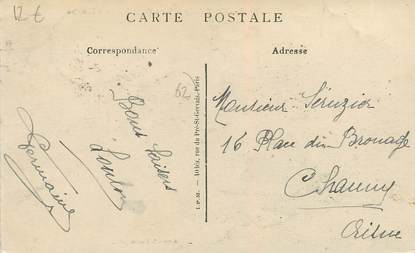 12 €
CARTE POSTALE
Correspondance
Adresse
62
Bons baisers
Loulou
Germaine
I.P.M. - 10 bis, rue du Pré-St-Gervais, Paris
Monsieur Séruzier
16 Place du Brouage
Chauny
Aisne